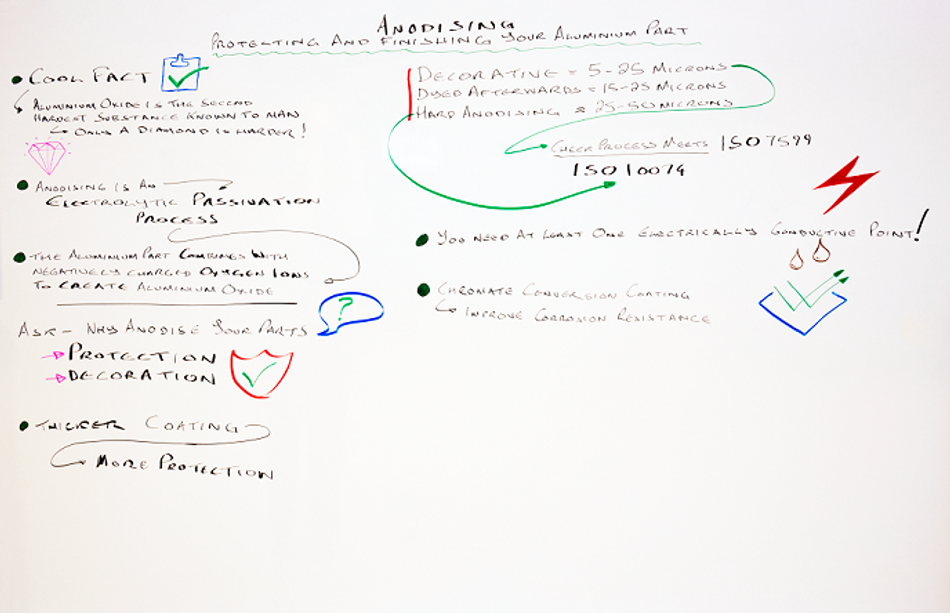 ANODISING
PROTECTING AND FINISHING YOUR ALUMINIUM PART
COOL FACT
ALUMINIUM OXIDE IS THE SECOND
HARDEST SUBSTANCE KNOWN TO MAN
ONLY A DIAMOND IS HARDER!
ANODISING IS AN
ELECTROLYTIC PASSIVATION
PROCESS
THE ALUMINIUM PART COMBINES WITH
NEGATIVELY CHARGED OXYGEN IONS
TO CREATE ALUMINIUM OXIDE
?
ASK - WHY ANODISE YOUR PARTS
PROTECTION
DECORATION
THICKER COATING
MORE PROTECTION
DECORATIVE = 5-25 MICRONS
DYED AFTERWARDS = 15-25 MICRONS
HARD ANODISING = 25-50 MICRONS
CHECK PROCESS MEETS ISO 7599
ISO 10074
YOU NEED AT LEAST ONE ELECTRICALLY CONDUCTIVE POINT!
CHROMATE CONVERSION COATING
IMPROVE CORROSION RESISTANCE